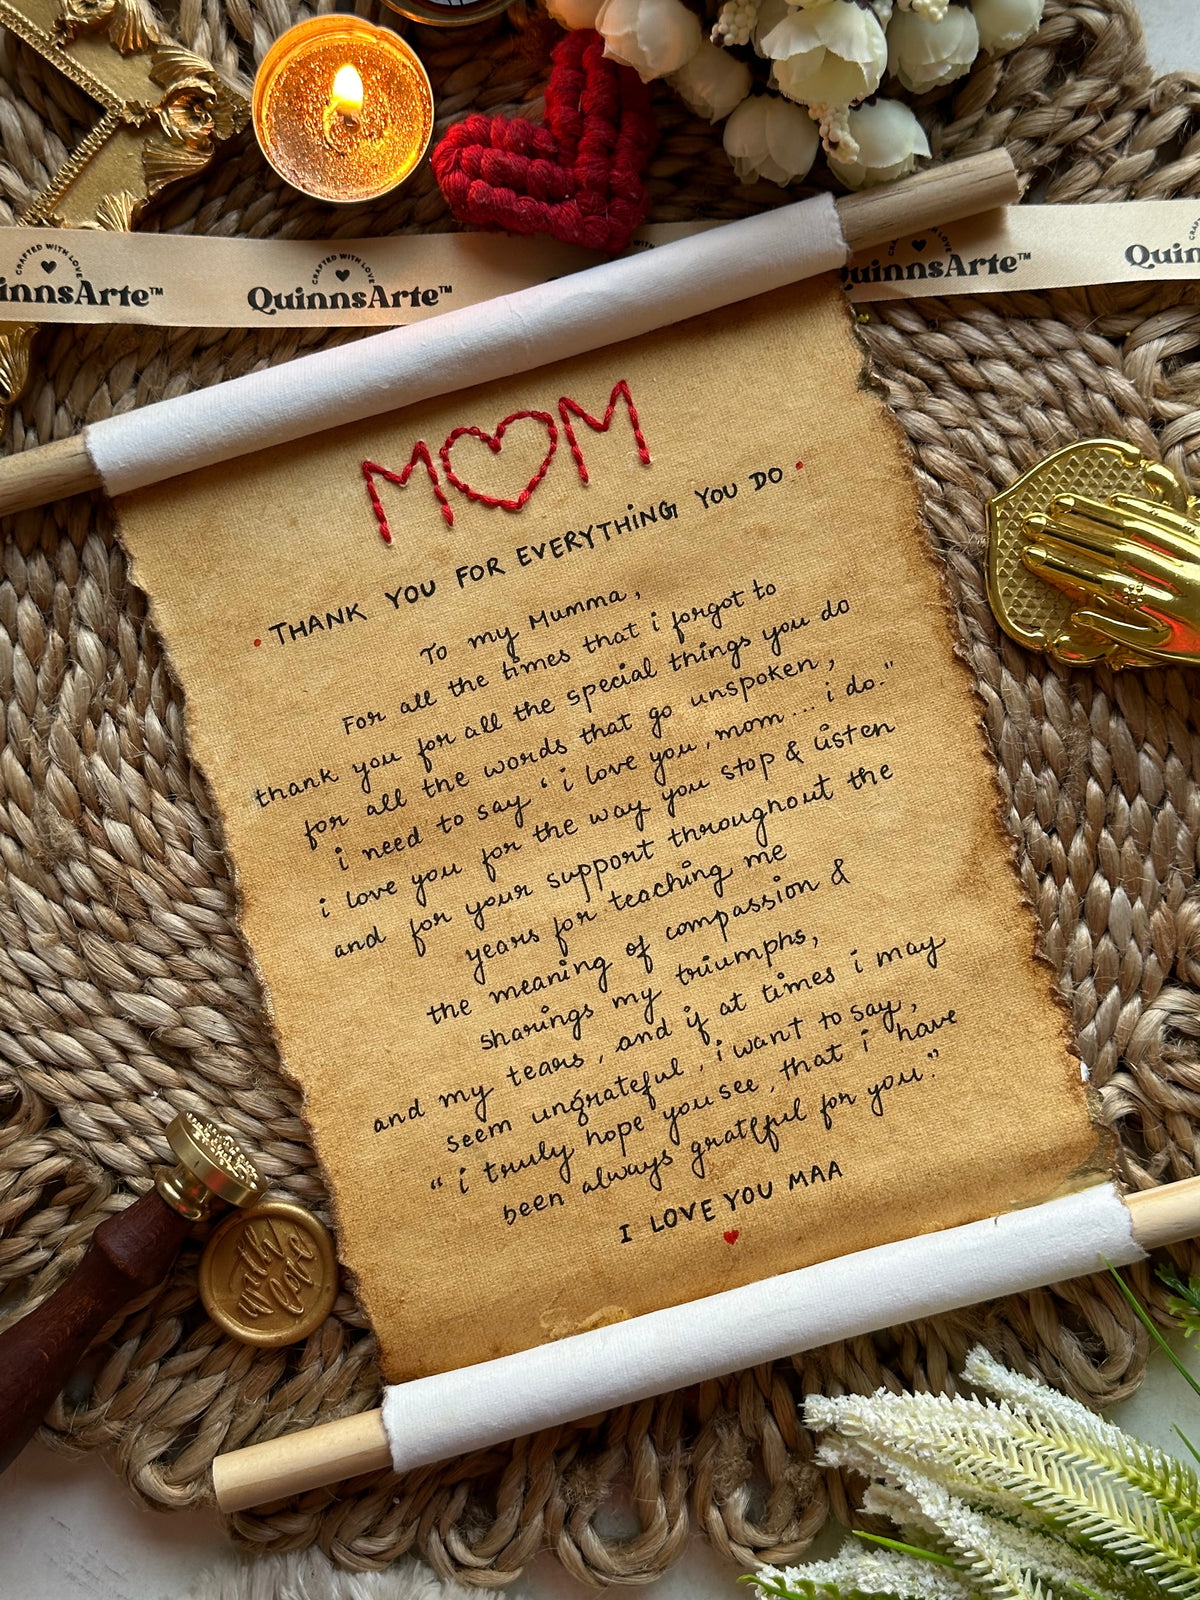 CRAFTED WITH LOVE
QuinnsArte™
CRAFTED WITH LOVE
QuinnsArte™
QuinnsArte™
Quin
MOM
THANK YOU FOR EVERYTHING YOU DO
To my Mumma,
For all the times that i forgot to
thank you for all the special things you do
for all the words that go unspoken,
i need to say ‘ i love you, mom... i do."
i love you for the way you stop & listen
and for your support throughout the
years for teaching me
the meaning of compassion &
sharings my triumphs,
and my tears, and if at times i may
seem ungrateful, i want to say,
“ i truly hope you see, that i have
been always gratlful for you.”
I LOVE YOU MAA
with
love